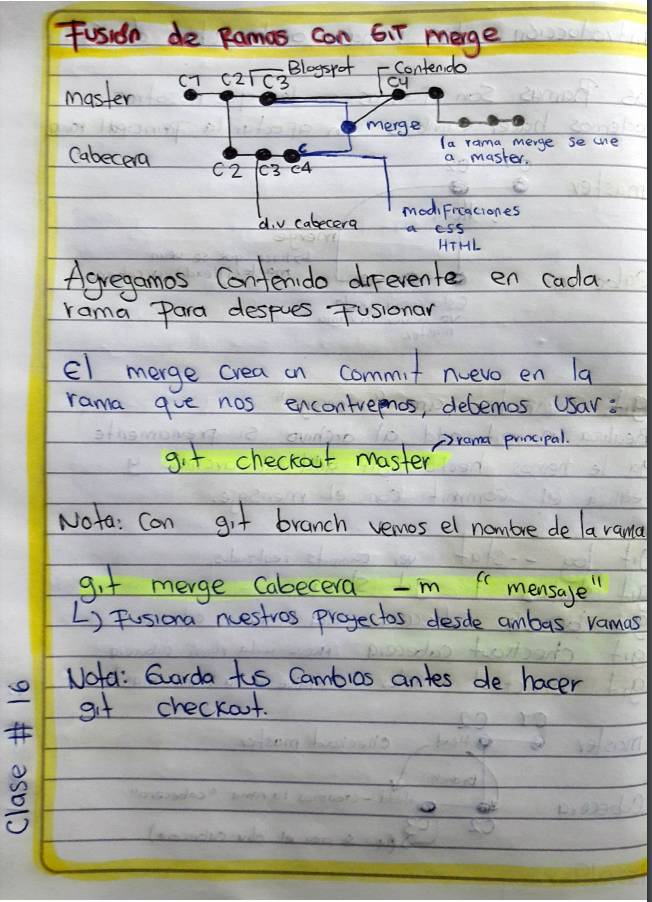 Fusión de Ramas con GIT merge
C1 C2 C3 Blogspot C4 Contenido
master
merge
la rama merge se une
a master.
Cabecera
C2 C3 C4
div cabecera
modificaciones
a css
HTML
Agregamos Contenido diferente en cada
rama para despues fusionar
El merge crea un commit nuevo en la
rama que nos encontremos, debemos usar:
git checkout master
rama principal.
Nota: Con git branch vemos el nombre de la rama
git merge Cabecera -m "mensaje"
Fusiona nuestros proyectos desde ambas ramas
Nota: Guarda tus cambios antes de hacer
git checkout.
Clase # 16